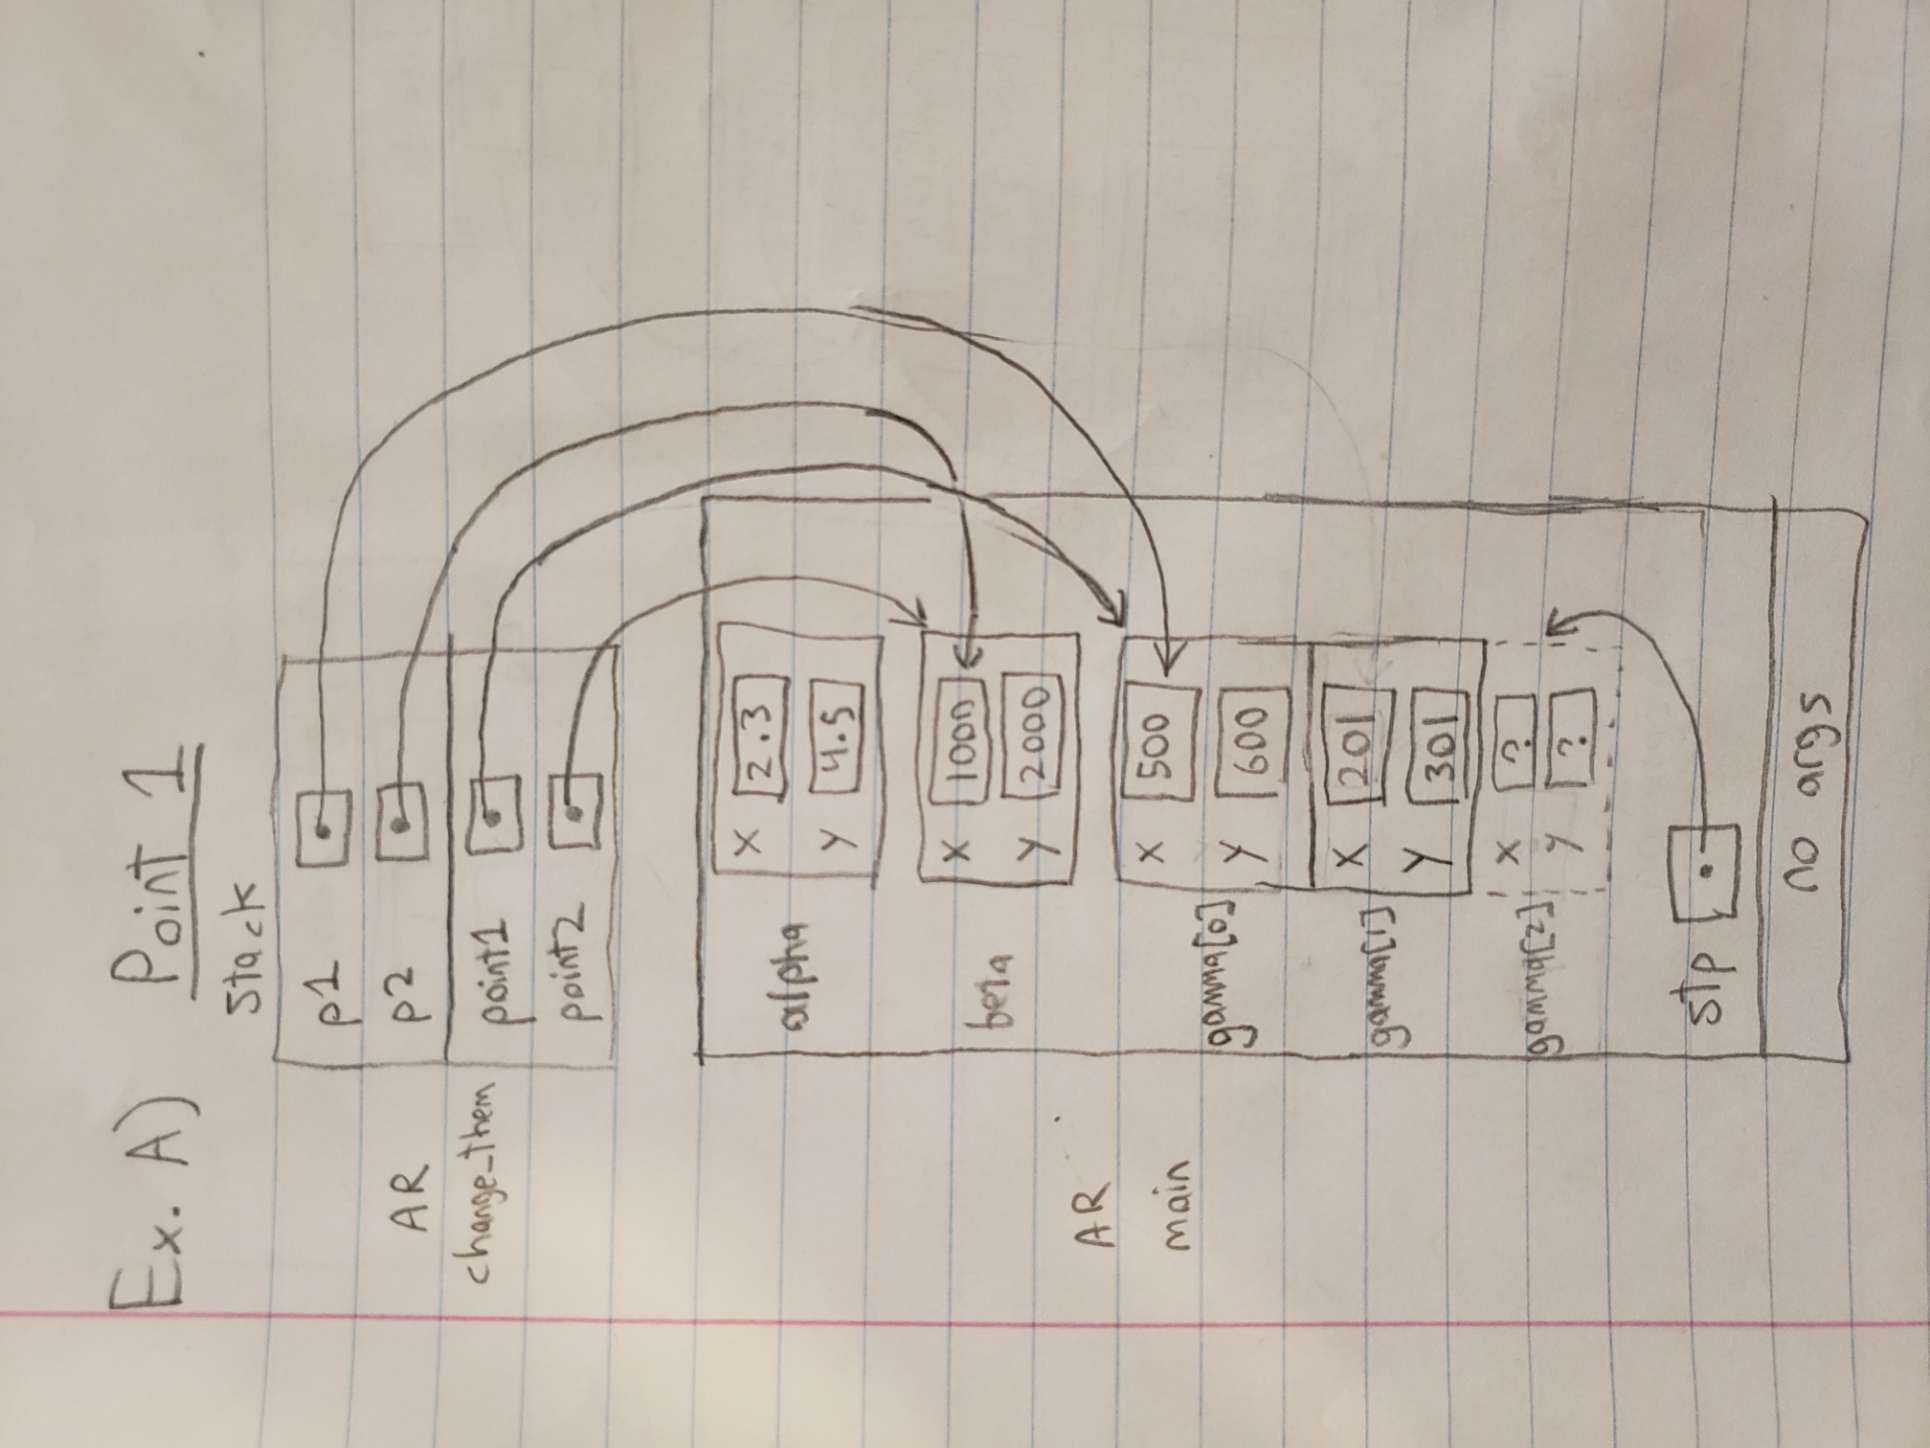 Ex. A) Point 1
Stack
p1
p2
AR
change_them
point1
point2
alpha
x 2.3
y 4.5
beta
x 1000
y 2000
AR
main
gamma[0]
x 500
y 600
gamma[1]
x 201
y 301
gamma[2]
x ?
y ?
stp
no args